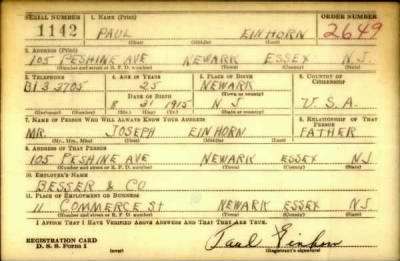 SERIAL NUMBER 1. NAME (Print) ORDER NUMBER
1142 PAUL EINHORN 2649
(First) (Middle) (Last)
2. ADDRESS (Print)
105 PESHINE AVE NEWARK ESSEX N.J.
(Number and street or R. F. D. number) (Town) (County) (State)
3. TELEPHONE 4. AGE IN YEARS 5. PLACE OF BIRTH 6. COUNTRY OF CITIZENSHIP
BI 3 3705 25 NEWARK
DATE OF BIRTH (Town or county)
8 31 1915 N J U.S.A.
(Exchange) (Number) (Mo.) (Day) (Yr.) (State or country)
7. NAME OF PERSON WHO WILL ALWAYS KNOW YOUR ADDRESS 8. RELATIONSHIP OF THAT PERSON
MR. JOSEPH EINHORN FATHER
(Mr., Mrs., Miss) (First) (Middle) (Last)
9. ADDRESS OF THAT PERSON
105 PESHINE AVE NEWARK ESSEX NJ
(Number and street or R. F. D. number) (Town) (County) (State)
10. EMPLOYER'S NAME
BESSER & CO
11. PLACE OF EMPLOYMENT OR BUSINESS
11 COMMERCE ST NEWARK ESSEX NJ
(Number and street or R. F. D. number) (Town) (County) (State)
I AFFIRM THAT I HAVE VERIFIED ABOVE ANSWERS AND THAT THEY ARE TRUE.
REGISTRATION CARD
D. S. S. Form 1 (over) Paul Einhorn
(Registrant's signature)